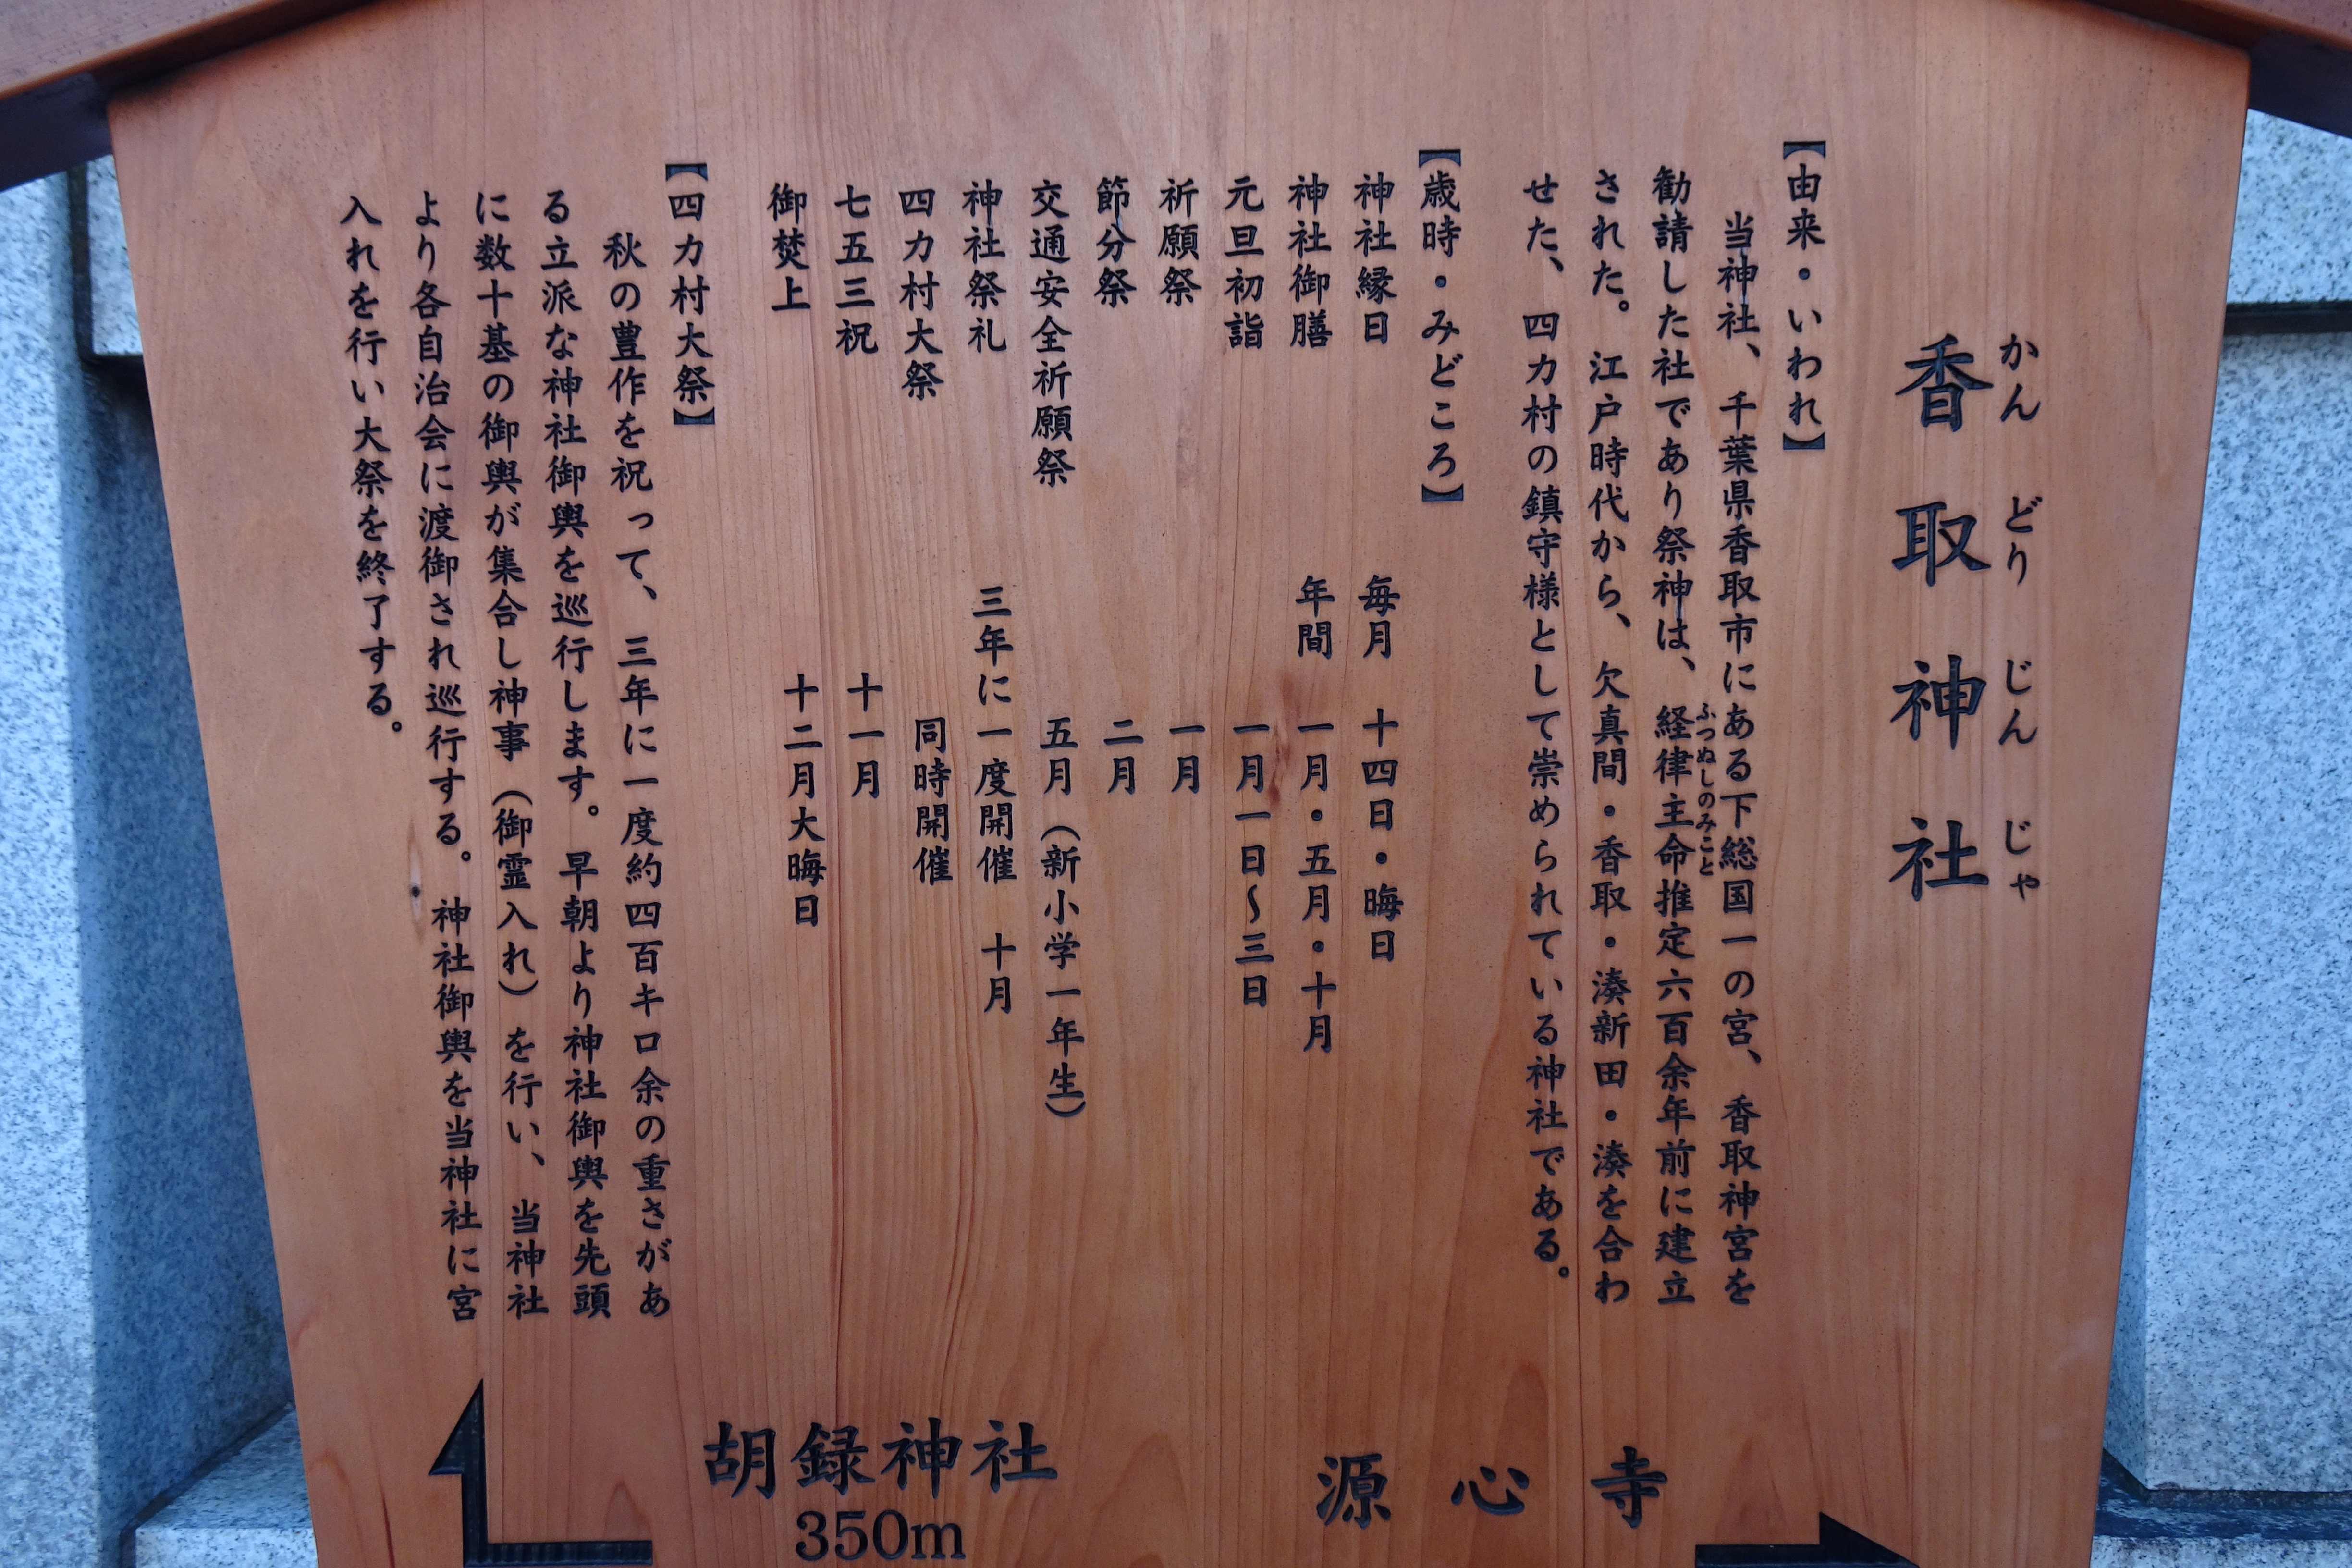 かんどりじんじゃ
香取神社
【由来・いわれ】
当神社、千葉県香取市にある下総国一の宮、香取神宮を
勧請した社であり祭神は、経律主命推定六百余年前に建立
ふつぬしのみこと
された。江戸時代から、欠真間・香取・湊新田・湊を合わ
せた、四カ村の鎮守様として崇められている神社である。
【歳時・みどころ】
神社縁日 毎月 十四日・晦日
神社御膳 年間 一月・五月・十月
元旦初詣 一月一日～三日
祈願祭 一月
節分祭 二月
交通安全祈願祭 五月（新小学一年生）
神社祭礼 三年に一度開催 十月
四カ村大祭 同時開催
七五三祝 十一月
御焚上 十二月大晦日
【四カ村大祭】
秋の豊作を祝って、三年に一度約四百キロ余の重さがあ
る立派な神社御輿を巡行します。早朝より神社御輿を先頭
に数十基の御輿が集合し神事（御霊入れ）を行い、当神社
より各自治会に渡御され巡行する。神社御輿を当神社に宮
入れを行い大祭を終了する。
胡録神社
350m
源心寺